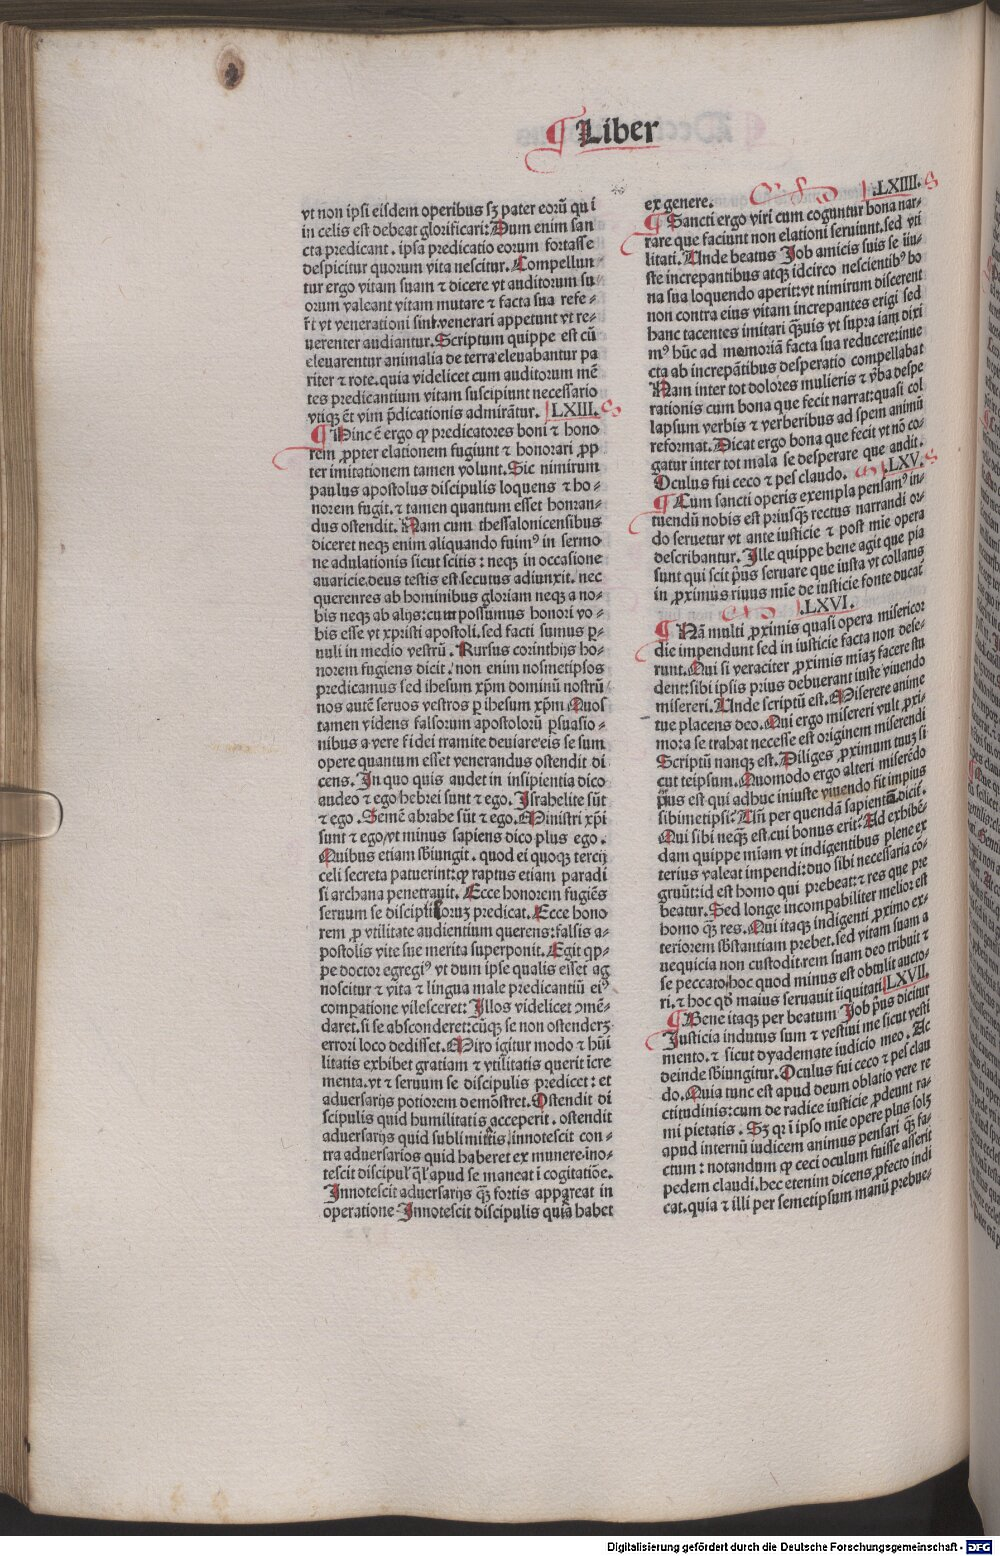 Liber
vt non ipsi eisdem operibus sꝫ pater eorū qui ī
in celis est debeat glorificari: Dum enim san
cta predicant. ipsa predicatio eorum fortasse
despicitur quorum vita nescitur. Compellun⸗
tur ergo vitam suam ⁊ dicere vt auditorum su⸗
orum valeant vitam mutare ⁊ facta sua refe⸗
rūt vt venerationi sint. venerari appetunt vt re⸗
uerenter audiantur. Scriptum quippe est cū
eleuarentur animalia de terra eleuabantur pa
riter ⁊ rote. quia videlicet cum auditorum mē
tes predicantium vitam suscipiunt necessario
vtiqꝫ ēt vim p̄dicationis admirātur. LXIII.
Hinc ē ergo ꝙ predicatores boni ⁊ hono
rem ꝓpter elationem fugiunt ⁊ honorari ꝓp
ter imitationem tamen volunt. Sic nimirum
paulus apostolus discipulis loquens ⁊ ho⸗
norem fugit. ⁊ tamen quantum esset honran⸗
dus ostendit. Nam cum thessalonicensibus
diceret neqꝫ enim aliquando fuimꝰ in sermo
ne adulationis sicut scitis: neqꝫ in occasione
auaricie. deus testis est secutus adiunxit. nec
querenres ab hominibus gloriam neqꝫ a no⸗
bis neqꝫ ab alijs: cum possumus honori vo⸗
bis esse vt xpristi apostoli. sed facti sumus ꝑ⸗
uuli in medio vestrū. Rursus corinthijs ho⸗
norem fugiens dicit. non enim nosmetipsos
predicamus sed ihesum xp̄m dominū nostrū
nos autē seruos vestros ꝑ ihesum xp̄m Quos
tamen videns falsorum apostolorū ꝑsuasio⸗
nibus a vere fidei tramite deuiare eis se sum
opere quantum esset venerandus ostendit di
cens. In quo quis audet in insipientia dico
audeo ⁊ ego hebrei sunt ⁊ ego. Israhelite sūt
⁊ ego. Semē abrahe sūt ⁊ ego. Ministri xp̄i
sunt ⁊ ego/ vt minus sapiens dico plus ego.
Quibus etiam sb̄iungit. quod ei quoqꝫ tercij
celi secreta patuerint: ꝙ raptus etiam paradi
si archana penetrauit. Ecce honorem fugiēs
seruum se discipuloruꝫ predicat. Ecce hono
rem ꝓ vtilitate audientium querens: falsis a⸗
postolis vite sue merita superponit. Egit qp⸗
pe doctor egregiꝰ vt dum ipse qualis esset ag
noscitur ⁊ vita ⁊ lingua male predicantiū eiꝰ
comꝑatione vilesceret: Illos videlicet ꝯmē⸗
daret. si se absconderet: cūqꝫ se non ostenderꝫ
errori loco dedisset. Miro igitur modo ⁊ hūi
litatis exhibet gratiam ⁊ vtilitatis querit īcre
menta. vt ⁊ seruum se discipulis predicet: et
aduersarijs potiorem demōstret. Ostendit di
scipulis quid humilitatis acceperit. ostendit
aduersarijs quid sublimitatis/ innotescit con⸗
tra aduersarios quid haberet ex munere. ino⸗
tescit discipul' q̄l' apud se maneat ī cogitatiōe.
Innotescit aduersarijs qꝫ fortis appareat in
operatione Innotescit discipulis quia habet
ex genere. LXIIII.
Sancti ergo viri cum coguntur bona nar⸗
rare que faciunt non elationi seruiunt. sed vti
litati. Unde beatus Job amicis suis se iiu⸗
ste increpantibus atqꝫ idcirco nescientibꝰ bo
na sua loquendo aperit: vt nimirum discerent
non contra eius vitam increpantes erigi sed
hanc tacentes imitari quis vt supra iam dixi
mꝰ hūc ad memoriā facta sua reducere: inue
cta ab increpātibus desperatio compellabat
Nam inter tot dolores mulieris ⁊ v̄ba despe
rationis cum bona que fecit narrat: quasi col
lapsum verbis ⁊ verberibus ad spem animū
reformat. Dicat ergo bona que fecit vt nō co⸗
gatur inter tot mala se desperare que audit.
Oculus fui ceco ⁊ pes claudo. LXV.
Cum sancti operis exempla pensamꝰ in⸗
tuendū nobis est priusqꝫ rectus narrandi or⸗
do seruetur vt ante iusticie ⁊ post mie opera
describantur. Ille quippe bene agit que pia
sunt qui scit p̄us seruare que iusta vt collatus
in ꝓximus riuus mīe de iusticie fonte ducat̄
LXVI.
Nā multi ꝓximis quasi opera misericor
die impendunt sed in iusticie facta non dese⸗
runt. Qui si veraciter ꝓximis mīaꝫ facere stu
dent: sibi ipsis prius debuerant iuste viuendo
misereri. Unde scriptū est. Miserere anime
tue placens deo. Qui ergo misereri vult ꝓxi⸗
mo ra se trahat necesse est originem miserendi
Scriptū nanqꝫ est. Diliges ꝓximum tuuꝫ si
cut teipsum. Quomodo ergo alteri miserēdo
p̄ius est qui adhuc iniuste viuendo fit impius
sibimetipsi: Un̄ per quendā sapientē dicit̄.
Qui sibi neqꝫ est. cui bonus erit: Ad exhibē⸗
dam quippe mīam vt indigentibus plene ex
terius valeat impendi: duo sibi necessaria cō⸗
gruūt: id est homo qui prebeat: ⁊ res que pre
beatur. Sed longe incompabiliter melior est
homo qꝫ res. Qui itaqꝫ indigenti ꝓximo ex⸗
teriorem sb̄stantiam prebet. sed vitam suam a
nequicia non custodit. rem suam deo tribuit ⁊
se peccato/ hoc quod minus est obtulit aucto⸗
ri. ⁊ hoc qd̄ maius seruauit iīquitati LXVII.
Bene itaqꝫ per beatum Job p̄us dicitur
Justicia indutus sum ⁊ vestiui me sicut vesti
mento. ⁊ sicut dyademate iudicio meo. Ac
deinde sb̄iungitur. Oculus fui ceco ⁊ pes clau
do. Quia tunc est apud deum oblatio vere re
ctitudinis: cum de radice iusticie ꝓdeunt ra⸗
mi pietatis. Sꝫ qr̄ ī ipso mīe opere plus solꝫ
apud internū iudicem animus pensari qꝫ fa⸗
ctum: notandum ꝙ ceci oculum fuisse asserit
pedem claudi. hec etenim dicens ꝓfecto indi
cat. quia ⁊ illi per semetipsum manū prebue⸗
Digitalisierung gefördert durch die Deutsche Forschungsgemeinschaft - DFG